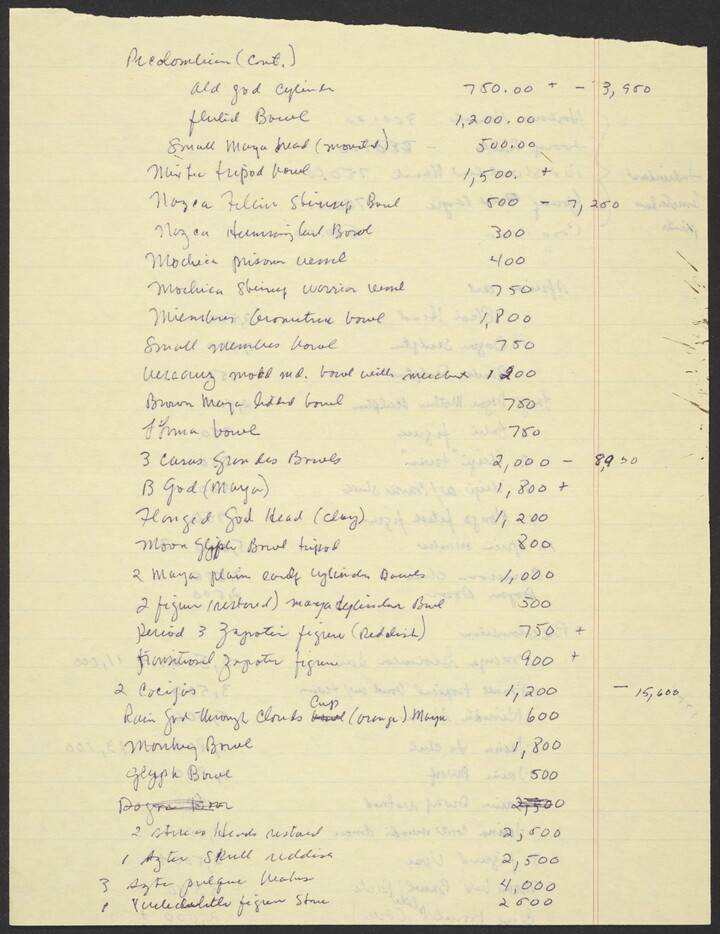 Precolombian (cont.)
Old god cylinder 750.00 + - 3,950
fluted Bowl 1,200.00
Small Maya head (mounted) 500.00
Mixtec tripod bowl. 1,500. +
Nazca Feline Stirrup Bowl 500 - 7,250
Nazca Hummingbird Bowl 300
Mochica prisoner vessel 400
Mochica Stirrup warrior vessel 750
Miembres Geometric bowl 1,800
Small membres bowl 750
Veracruz mold md. bowl with 1200
Brown Maya lidded bowl 750
bowl 750
3 Casas Grandes Bowls 2,000 - 8950
B God (Maya) 1,800 +
Flanged God Head (clay) 1,200
Moon Glyph Bowl tripod 800
2 Maya plain cylinder Bowls 1,000
2 figure (restored) maya cylinder Bowl 500
Period 3 Zapotec figure (Reddish) 750 +
transitional Zapotec figure 900 +
2 Cocijos 1,200 - 15,600
Rain God through Clouds Cup (orange) Maya 600
Monkey Bowl 1,800
Glyph Bowl 500
2 stucco Heads restored 2,500
1 Aztec Skull reddish 2,500
3 Aztec pulque 4,000
1 figure Stone 2500